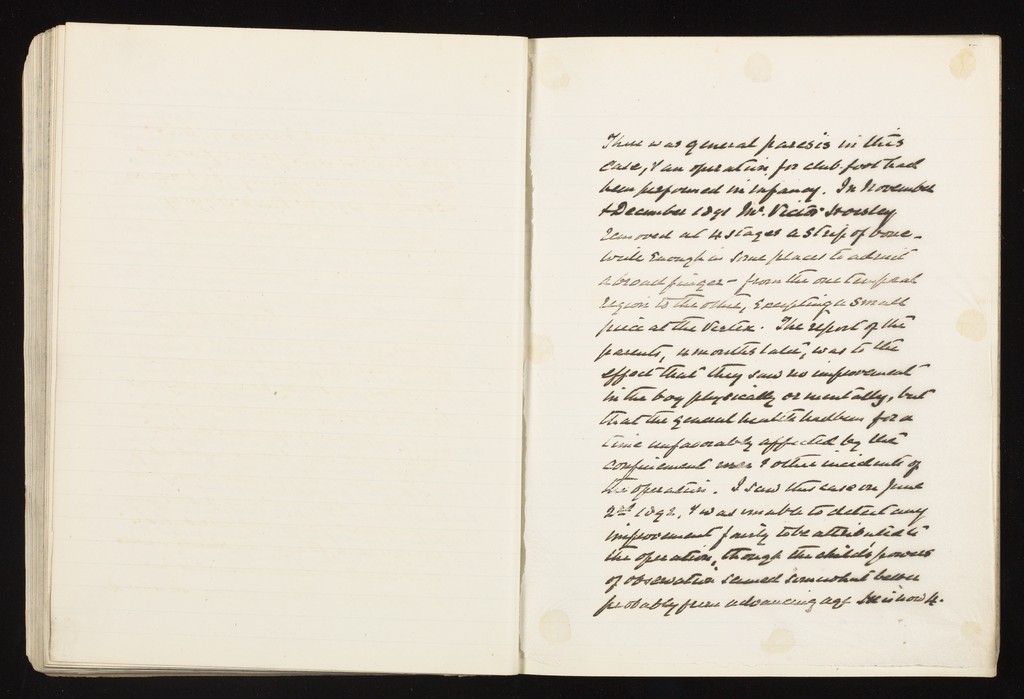 There was general paresis in this
case, & an operation for club foot had
been performed in infancy. In November
& December 1891 Mr. Victor Horsley
removed at 4 stages a strip of bone –
wide enough in some places to admit
a broad finger – from the one temporal
region to the other, excepting a small
piece at the vertex. The report of the
parents, 4 months later, was to the
effect that they saw no improvement
in the boy physically or mentally, but
that the general health had been for a
time unfavorably affected by the
confinement & other incidents of
the operation. I saw this case on June
2nd 1892, & was unable to detect any
improvement fairly to be attributed to
the operation, though the child's powers
of observation seemed somewhat better
probably from advancing age. He is now 4.